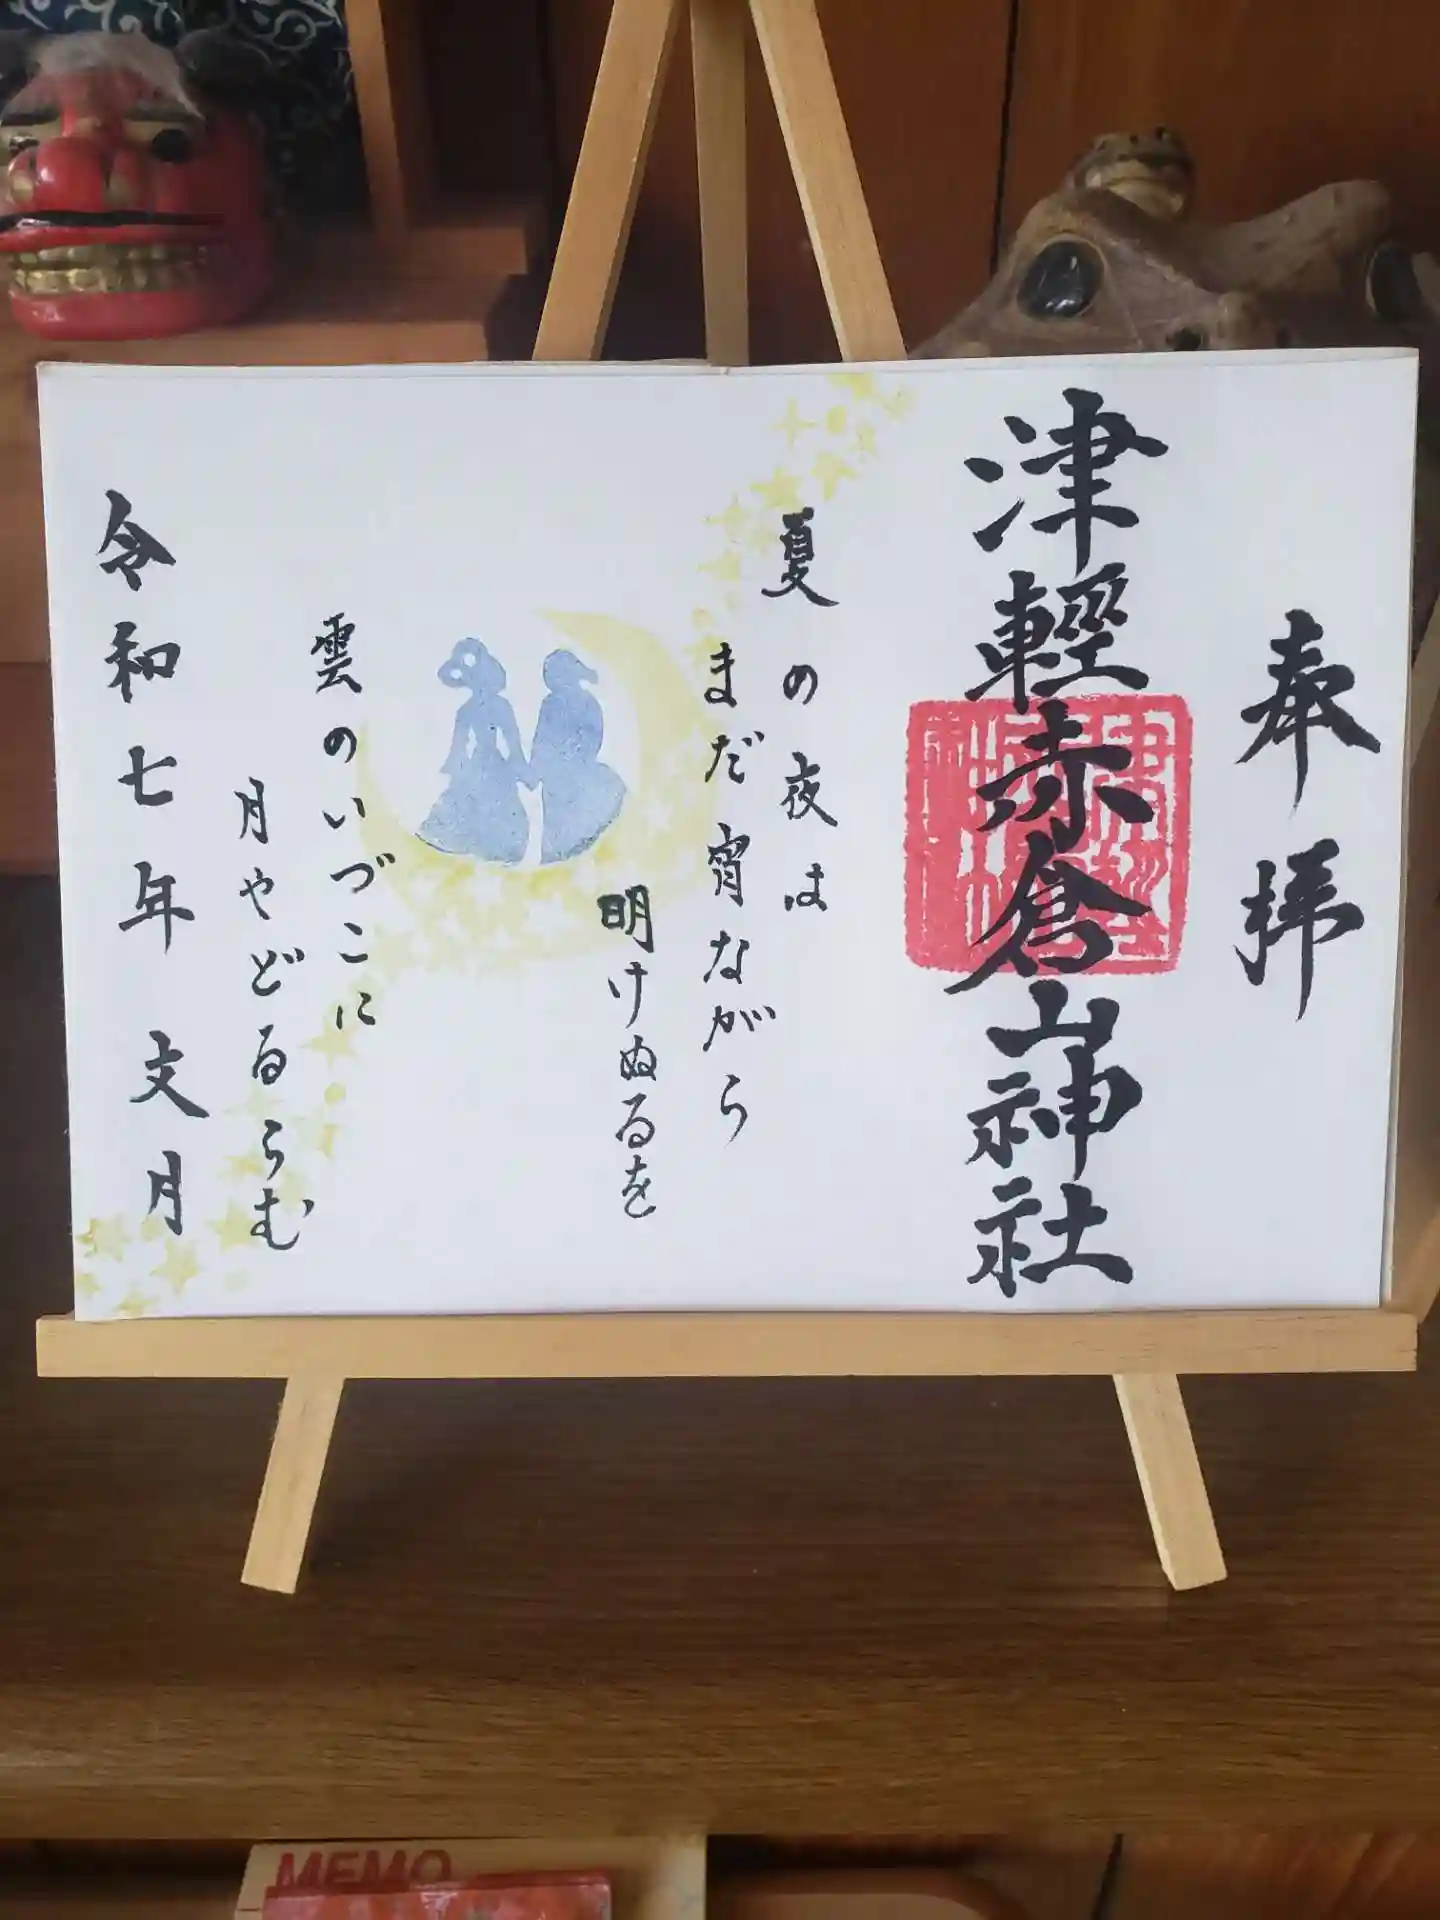 奉拝
津輕赤倉山神社
夏の夜は
まだ宵ながら
明けぬるを
雲のいづこに
月やどるらむ
令和七年 文月
MEMO